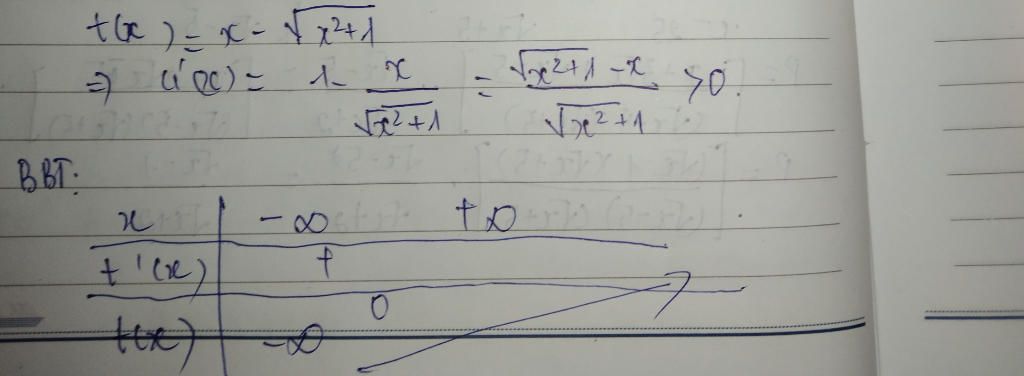 t(x) = x - √x²+1
⇒ t'(x) = 1 - x/√x²+1 = √x²+1 - x/√x²+1 > 0.
BBT:
x -∞ +∞
t'(x) +
0
t(x) -∞